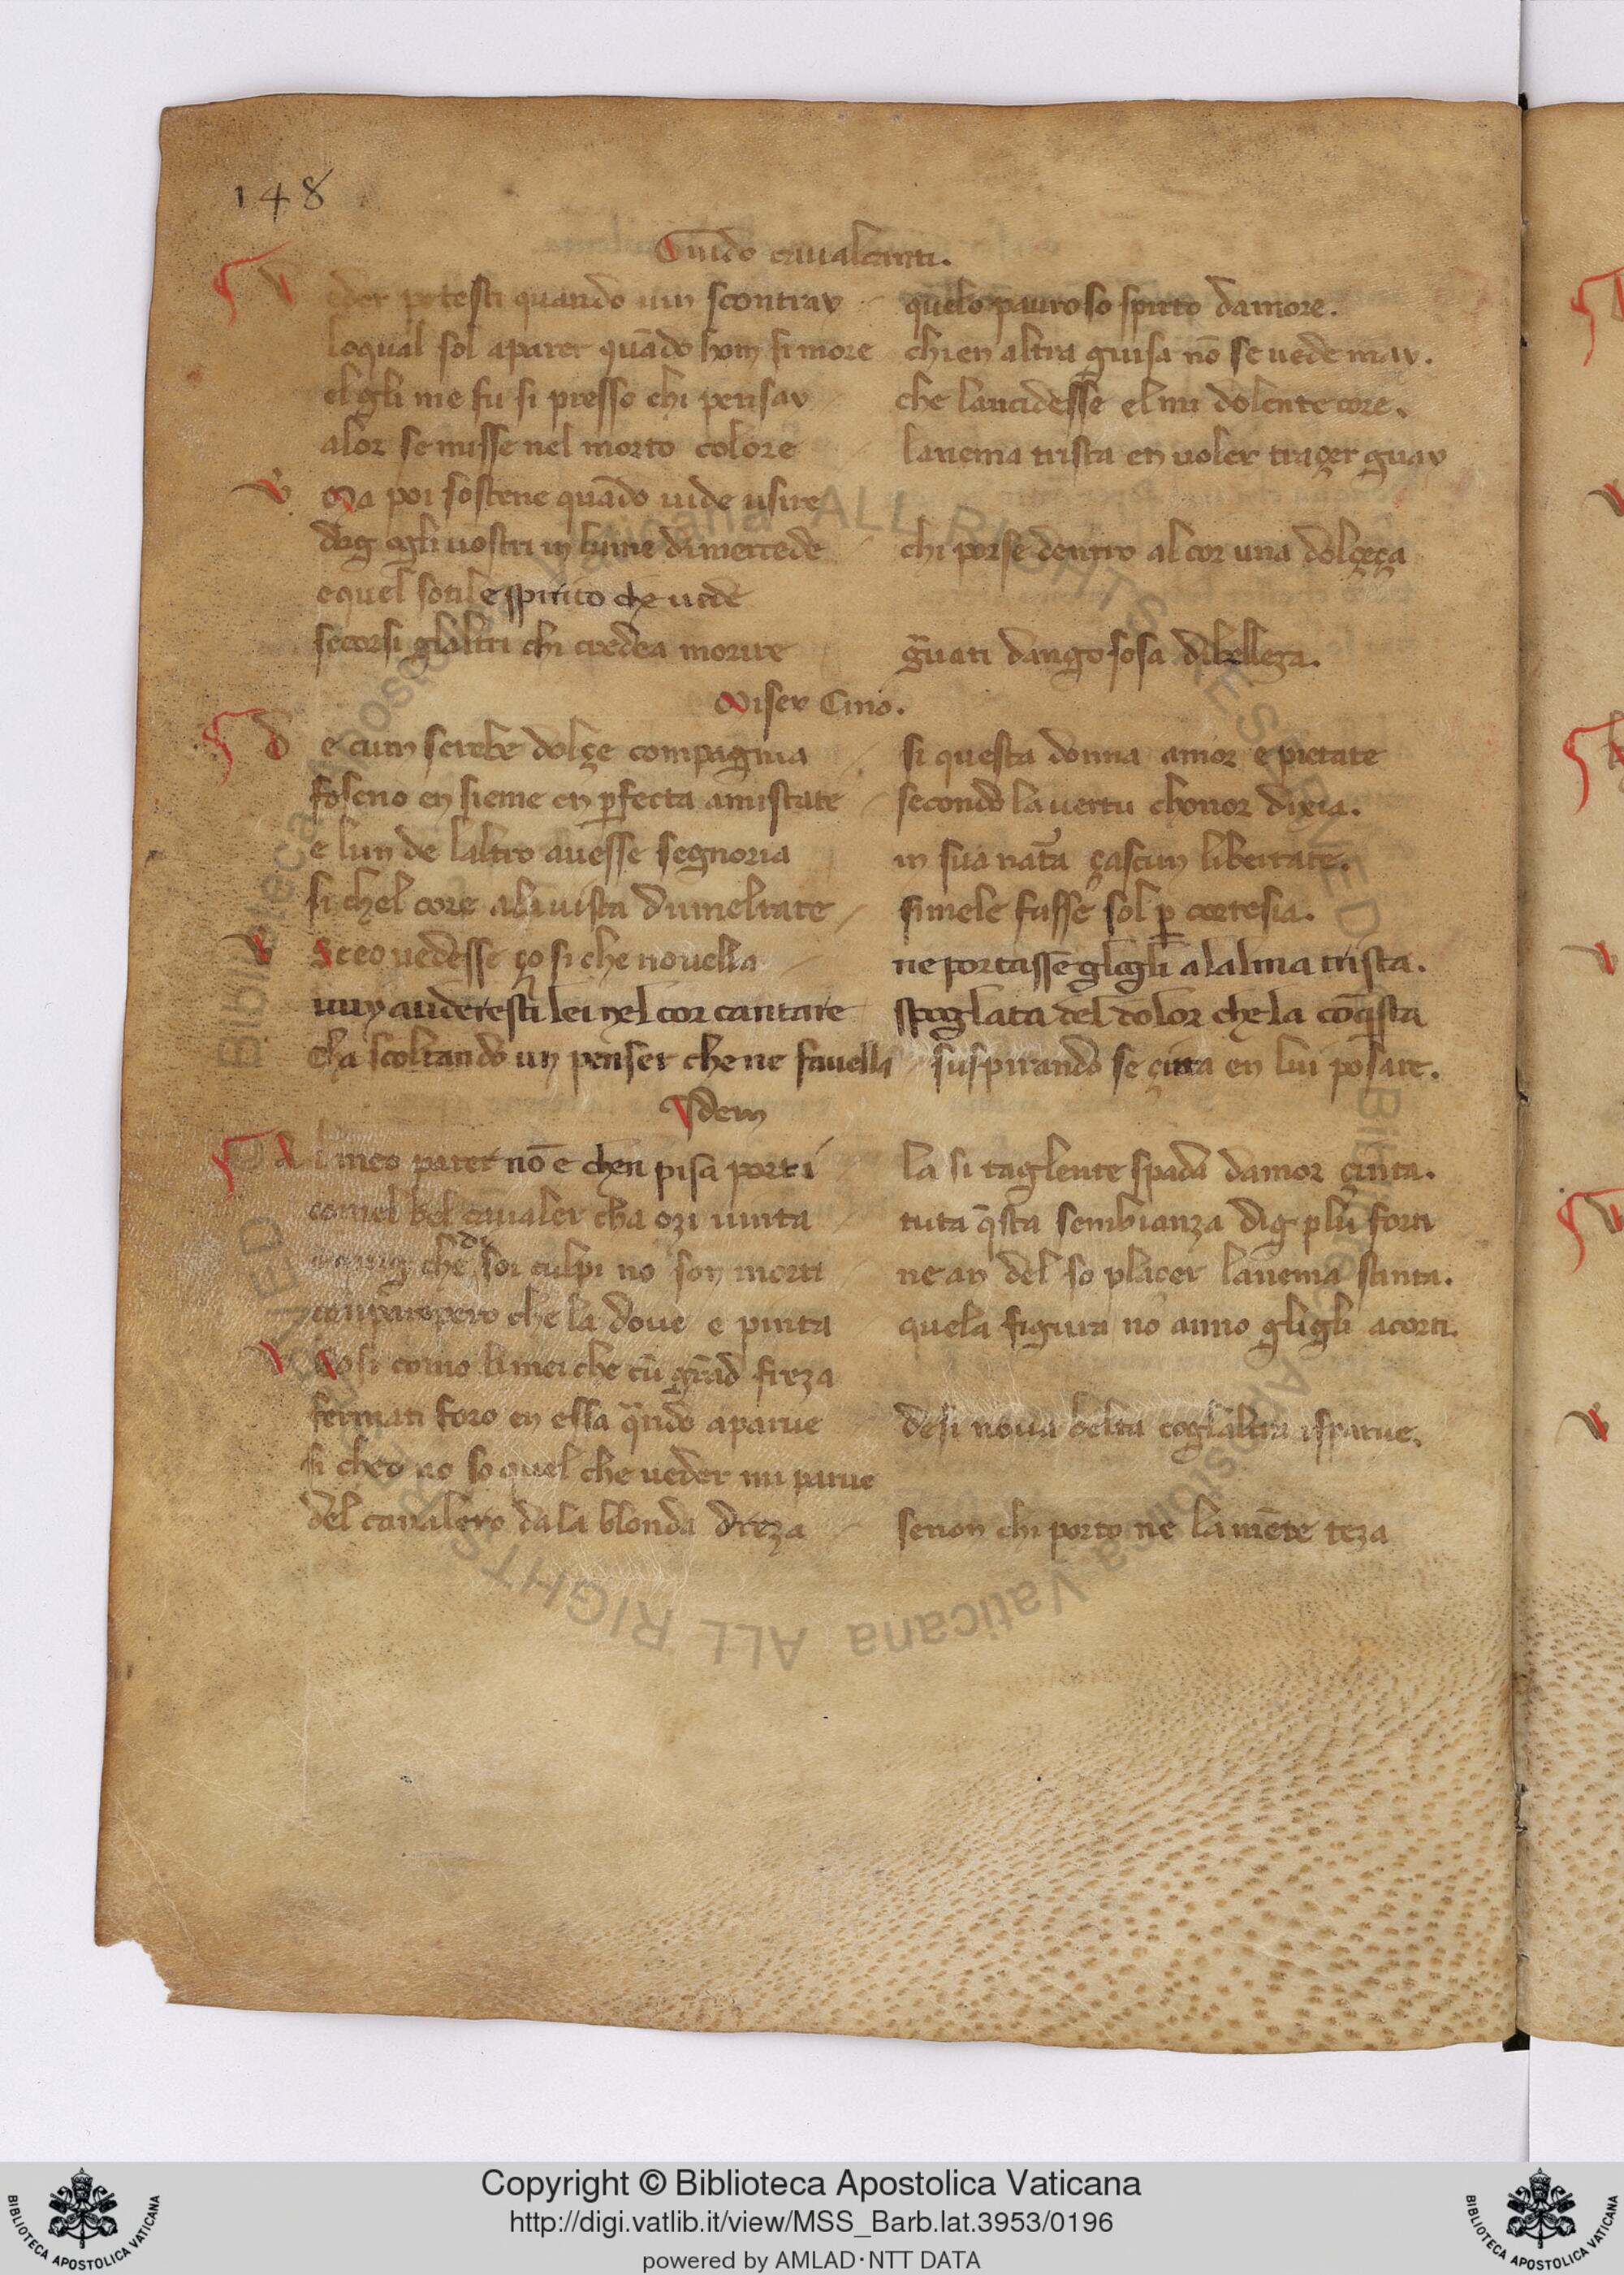 148
Guido cavalcanti.
Veder potesti quando vui scontrav quelo pauroso spirto damore.
loqual sol aparer quādo hom si more chi en altra guisa nō se vede mav.
elgli me fu si presso chi pensav che lancidesse el mi dolente core.
alor se misse nel morto colore lanema trista en voler traçer guav
Ma poi sostene quādo vide usire
degli vostri un lume di mercede chi porse dentro al cor una dolçeça
e quel sotile spirito che vide
secorsi glaltri chi credea morire gravati dangososa di belleza.
Miser Cino.
De cum serebe dolçe compagnia si questa donna amor e pietate
foseno en sieme en perfecta amistate secondo la vertu chonor dixia.
e lun de laltro avesse segnoria in sua natā çascun libertate.
si chel core ala vista dumeltate simele fusse sol p cortesia.
S eo vedesse ço si che novella ne portassē glogli a lalma trista.
vuy auderesti lei nel cor cantare spoglata del dolor che la cōqsta
Cha scoltando un penser che ne favella suspirando se çitta en lui posare.
Idem
Al meo parer nō e chen pisa porti la si taglente spada damor çinta.
comel bel cavaler cha ozi vinta tuta qsta sembianza dig plu forti
che di soi culpi no son morti ne an del so placer lanema stinta.
pero che la dove e pinta quela figura no anno gligli acorti.
Cosi como li mei che cū grād fireza
fermati foro en essa qndo aparve de si nova belta coglaltra isparve.
si cheo no so quel che veder mi parve
del cavalero da la blonda dreza se non chi porto ne la mēte teza
Copyright © Biblioteca Apostolica Vaticana
http://digi.vatlib.it/view/MSS_Barb.lat.3953/0196
powered by AMLAD·NTT DATA